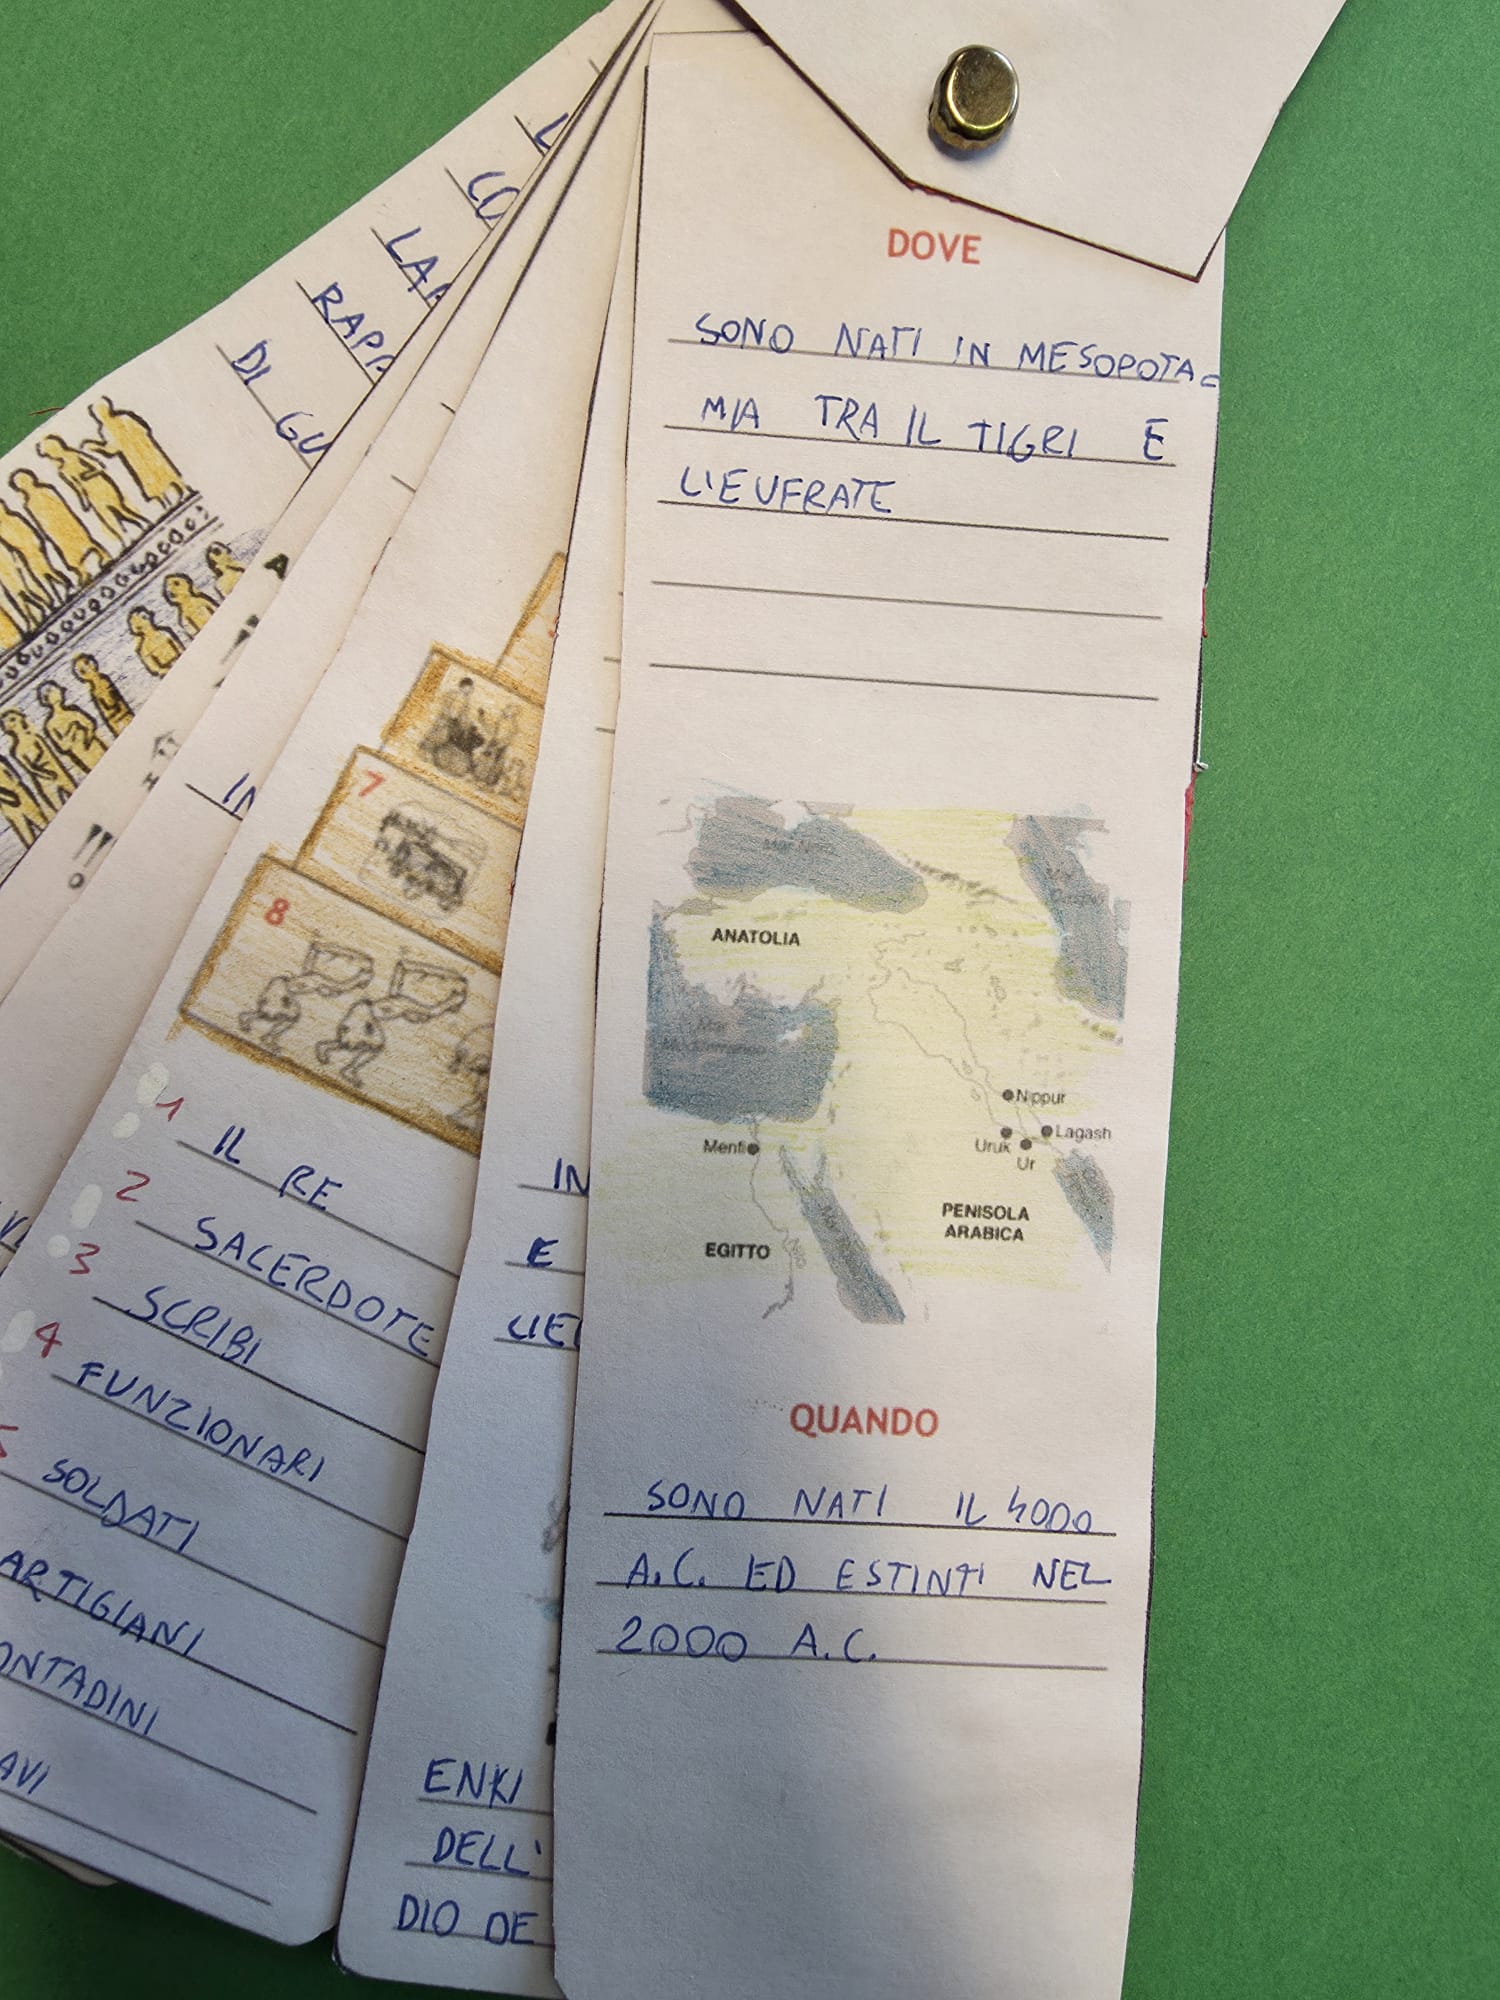 DOVE
SONO NATI IN MESOPOTA=
MIA TRA IL TIGRI E
L'EUFRATE
Mar Nero
ANATOLIA
Mar
Mediterraneo
Nippur
Lagash
Uruk
Ur
Menfi
PENISOLA
ARABICA
EGITTO
QUANDO
SONO NATI IL 4000
A.C. ED ESTINTI NEL
2000 A.C.
IN
E
ENKI
DELL'
DIO DE
7
8
1 IL RE
2 SACERDOTE
3 SCRIBI
4 FUNZIONARI
5 SOLDATI
ARTIGIANI
ONTADINI
AVI
IN
L
CO
LA
RAPP
DI GU